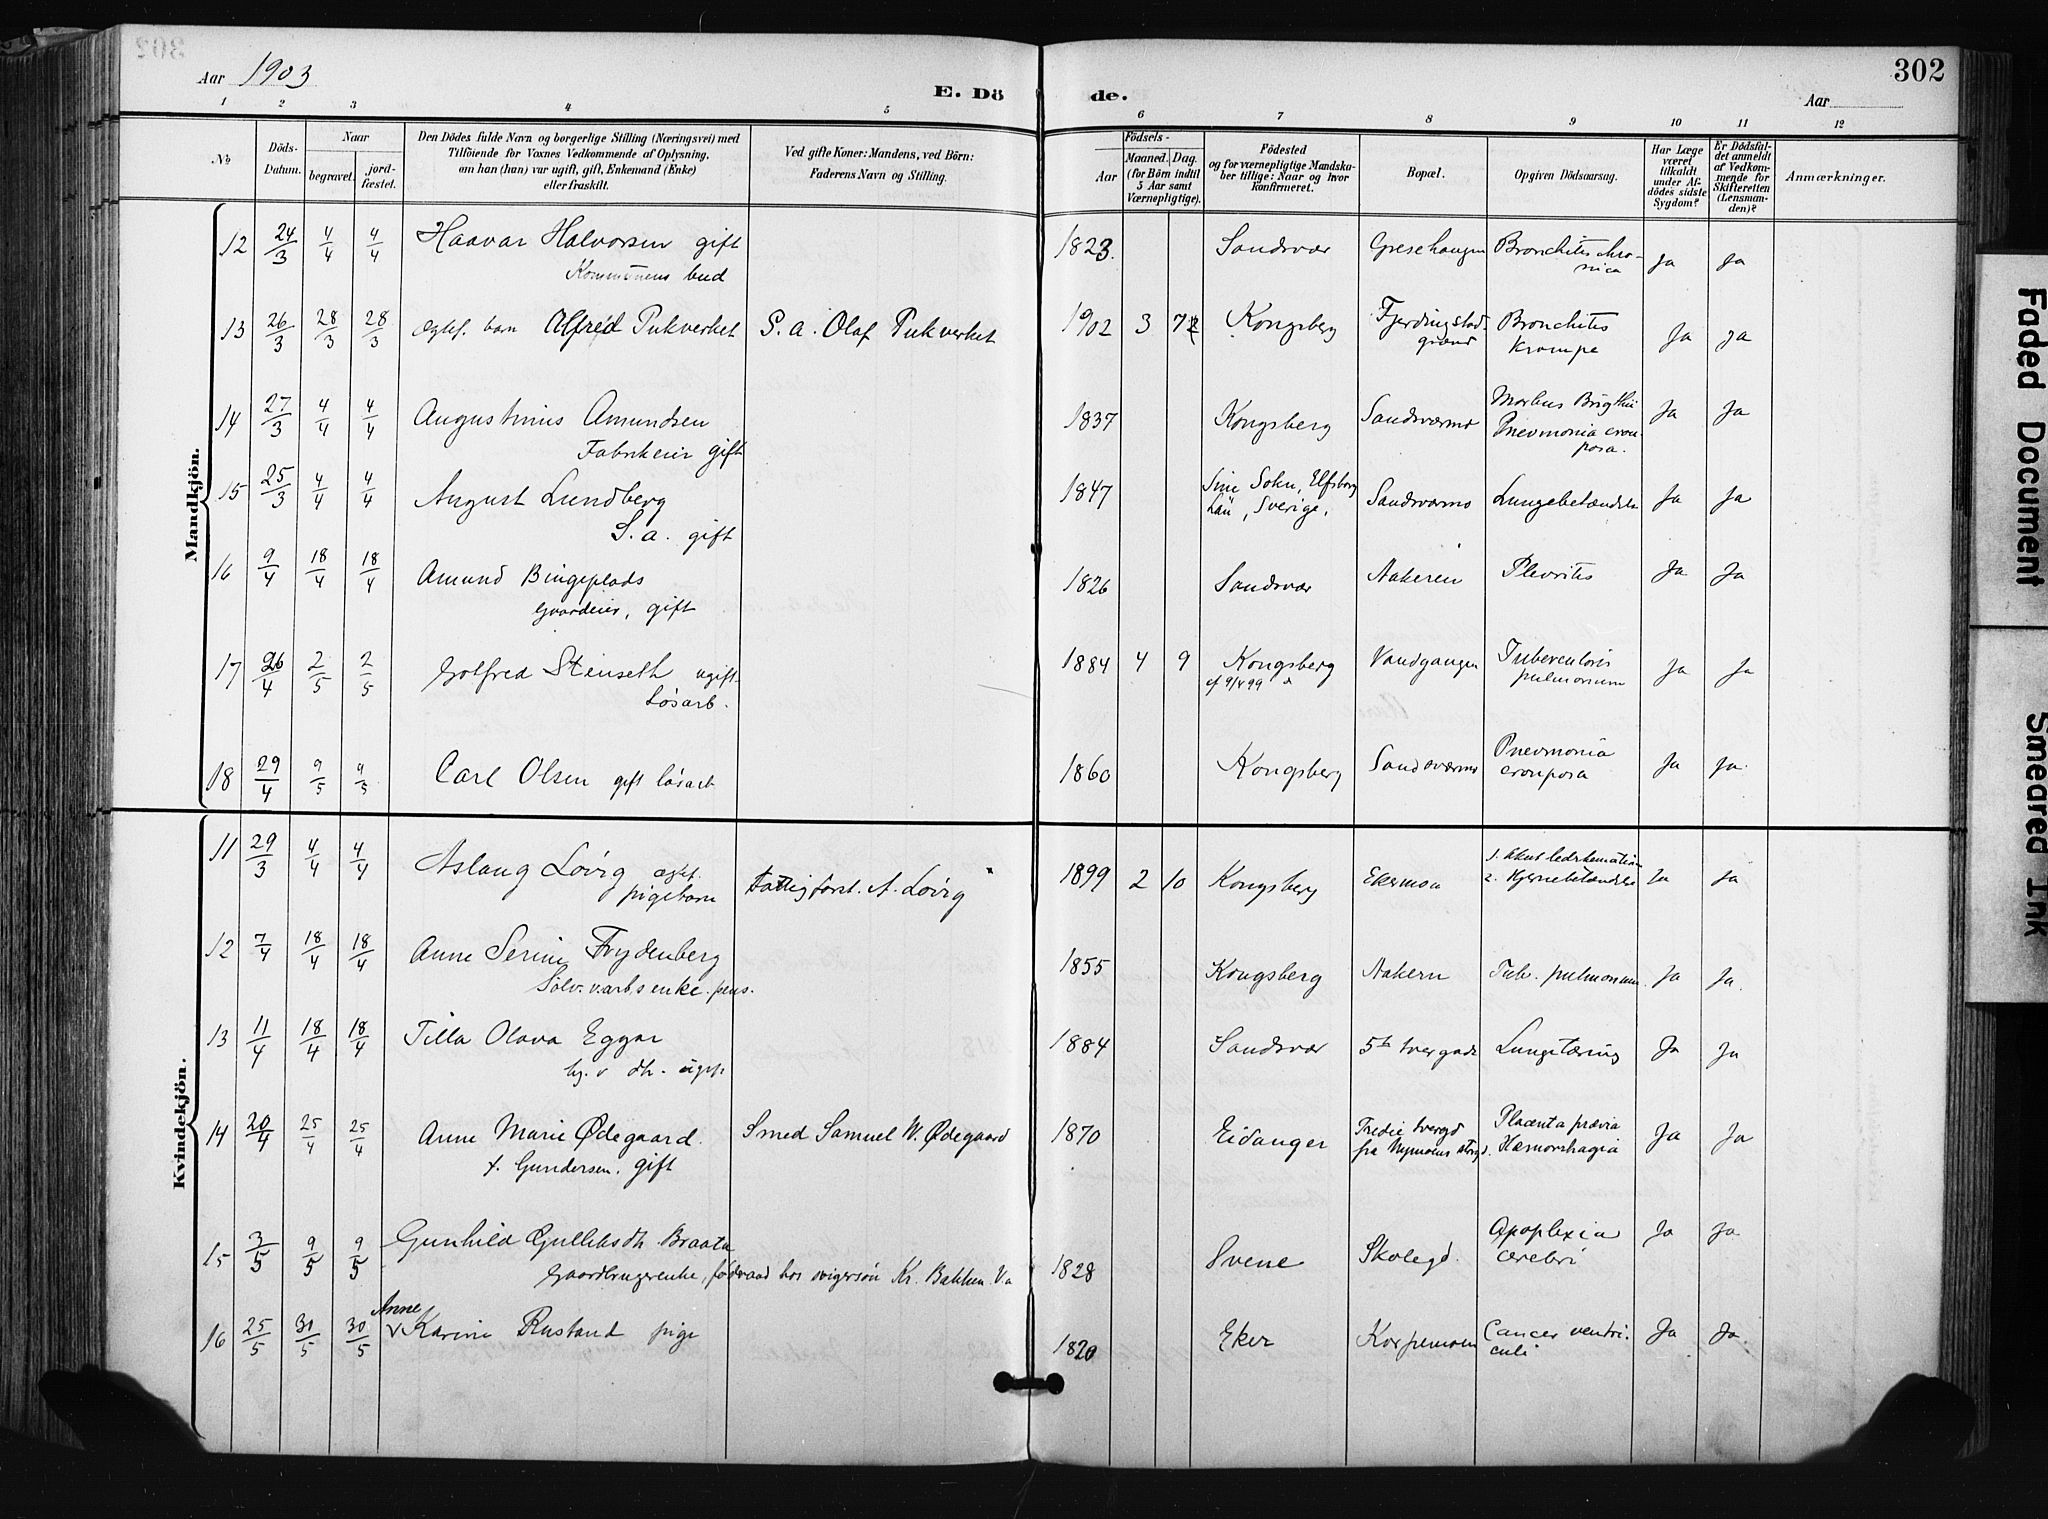 302
Aar 1903
E. Dö de.
Aar
1 2 3 4 5 6 7 8 9 10 11 12
No
Döds-Datum.
Naar
begravet.
jord-fæstet.
Den Dödes fulde Navn og borgerlige Stilling (Næringsvei) med
Tilföiende for Voxnes Vedkommende af Oplysning,
om han (hun) var ugift, gift, Enkemand (Enke)
eller fraskilt.
Ved gifte Koner: Mandens, ved Börn:
Faderens Navn og Stilling.
Födsels-
Aar
Maaned. Dag.
(for Börn indtil
5 Aar samt
Værnepligtige).
Födested
og for værnepligtige Mandska-
ber tillige: Naar og hvor
konfirmeret.
Bopæl.
Opgiven Dödsaarsag.
Har Læge
været
tilkaldt
under Af-
dödes sidste
Sygdom?
Er Dödsfal-
det anmeldt
af Vedkom-
mende for
Skifteretten
(Lensman-
den)?
Anmærkninger.
Mandkjön.
12 24/3 4/4 4/4 Haavar Halvorsen gift 1823. Sandsvær Gresehaugen Bronchites chro-
Kommunens bud nica Ja Ja
13 26/3 28/3 28/3 ægtef. barn Alfred Pukverket S. a. Olaf Pukverket 1902 3 Kongsberg Fjerdingstad- Bronchites
grænd Krompe Ja Ja
14 27/3 4/4 4/4 Augustinius Amundsen 1837 Kongsberg Sandsværmo Morbus Brigthii Ja Ja
Fabrikeier gift Pnevmonia crou-
posa.
15 25/3 4/4 4/4 August Lundberg 1847 Sokn, Elfsborg Sandsværmo Lungebetændelse Ja Ja
S. a. gift Län, Sverige.
16 9/4 18/4 18/4 Amund Bingeplads 1826 Sandsvær Aakeren Plevrites Ja Ja
Gaardeier, gift
17 26/4 2/5 2/5 Gotfred Stenseth ugift 1884 4 9 Kongsberg Vandgangen Tuberculosis Ja Ja
Løsarb. cf 9/4 99 pulmonum
18 29/4 9/5 9/5 Carl Olsen gift løsarb 1860 Kongsberg Sandsværmo Pnevmonia Ja Ja.
crouposa
Kvindekjön.
11 29/3 4/4 4/4 Aslaug Løvig ægt. Fattigforst. A. Løvig 1899 2 10 Kongsberg Ekermoa 1. Akut ledrhematism
pigebarn 2. Hjernebetændelse Ja Ja
12 7/4 18/4 18/4 Anne Serine Frydenberg 1855 Kongsberg Aakern Tub. pulmonum. Ja Ja.
Sølv. v. arb,s enke. pens.
13 11/4 18/4 18/4 Tilla Olava Eggar 1884 Sandsvær 5te tvergade Lungetæring Ja Ja
14 20/4 25/4 25/4 Anne Marie Ødegaard. Smed Samuel W. Ødegaard 1870 Eidanger Tredie tvergd Placenta prævia Ja Ja
f. Gundersen. gift fra Nymoens storgd. Hæmorrhagia
15 3/5 9/5 9/5 Gunhild Gulliksdt. Braata 1828 Svene Skolegd. Apoplexia Ja Ja
Gaardbrugerenke, føderaad hos svigersøn Kr. Bakken. cerebri
16 25/5 30/5 30/5 Anne
Karine Rustand pige 1820 Eker Korpemoen Cancer ventri- Ja Ja.
culi
Faded Document
Smeared Ink